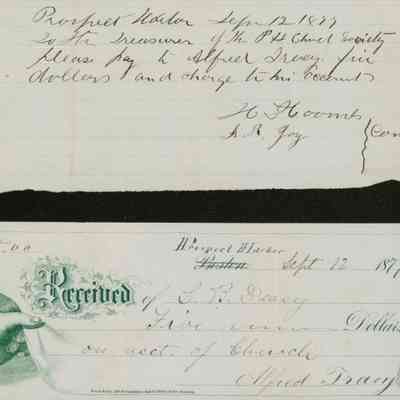 Prospect Harbor Sept 12 1879
To the Treasurer of the P H Church Society
please pay to Alfred Tracy five
dollars and charge to his accounts
H. Coombs
Com
Prospect Harbor
Boston Sept 12 187
Received of L. B. Deasy
Five Dollars
on acct. of Church
Alfred Tracy